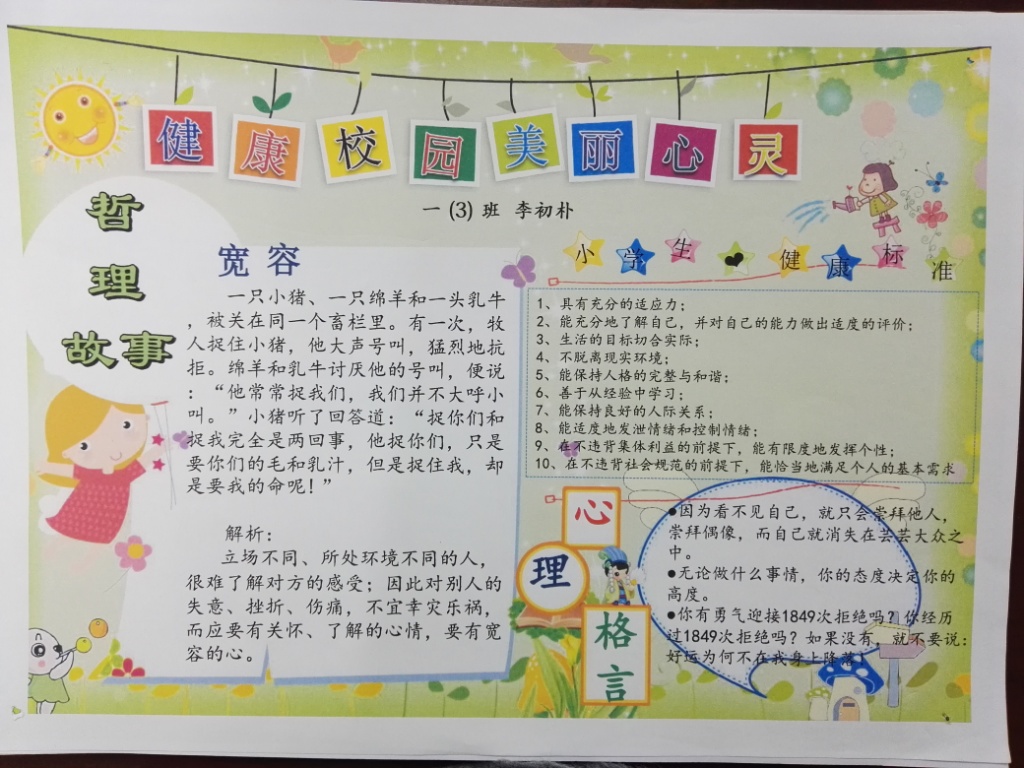 健康校园美丽心灵
一 (3) 班 李初朴
哲
理
故事
宽 容
一只小猪、一只绵羊和一头乳牛
，被关在同一个畜栏里。有一次，牧
人捉住小猪，他大声号叫，猛烈地抗
拒。绵羊和乳牛讨厌他的号叫，便说
：“他常常捉我们，我们并不大呼小
叫。”小猪听了回答道：“捉你们和
捉我完全是两回事，他捉你们，只是
要你们的毛和乳汁，但是捉住我，却
是要我的命呢！”
解析：
立场不同、所处环境不同的人，
很难了解对方的感受；因此对别人的
失意、挫折、伤痛，不宜幸灾乐祸，
而应要有关怀、了解的心情，要有宽
容的心。
小学生❤健康标准
1、具有充分的适应力；
2、能充分地了解自己，并对自己的能力做出适度的评价；
3、生活的目标切合实际；
4、不脱离现实环境；
5、能保持人格的完整与和谐；
6、善于从经验中学习；
7、能保持良好的人际关系；
8、能适度地发泄情绪和控制情绪；
9、在不违背集体利益的前提下，能有限度地发挥个性；
10、在不违背社会规范的前提下，能恰当地满足个人的基本需求
心
理
格
言
●因为看不见自己，就只会崇拜他人，
崇拜偶像，而自己就消失在芸芸大众之
中。
●无论做什么事情，你的态度决定你的
高度。
●你有勇气迎接1849次拒绝吗？你经历
过1849次拒绝吗？如果没有，就不要说：
好运为何不在我身上降落！